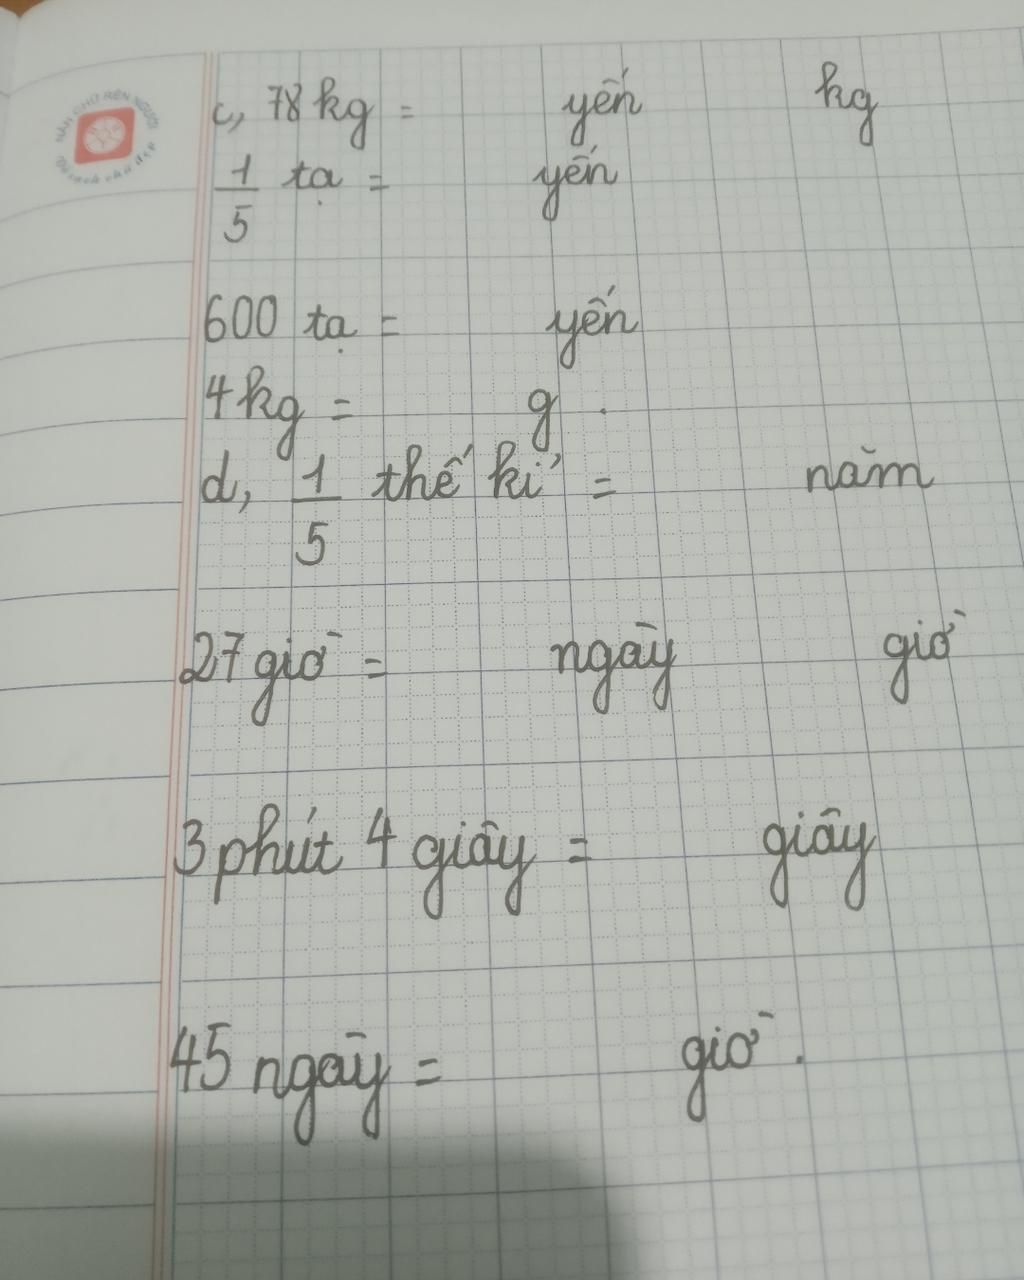 NẮN CHỮ RÈN NGƯỜI
c, 78 kg = yến kg
1/5 tạ = yến
600 tạ = yến
4 kg = g .
d, 1/5 thế kỉ = năm
27 giờ = ngày giờ
3 phút 4 giây = giây
45 ngày = giờ .